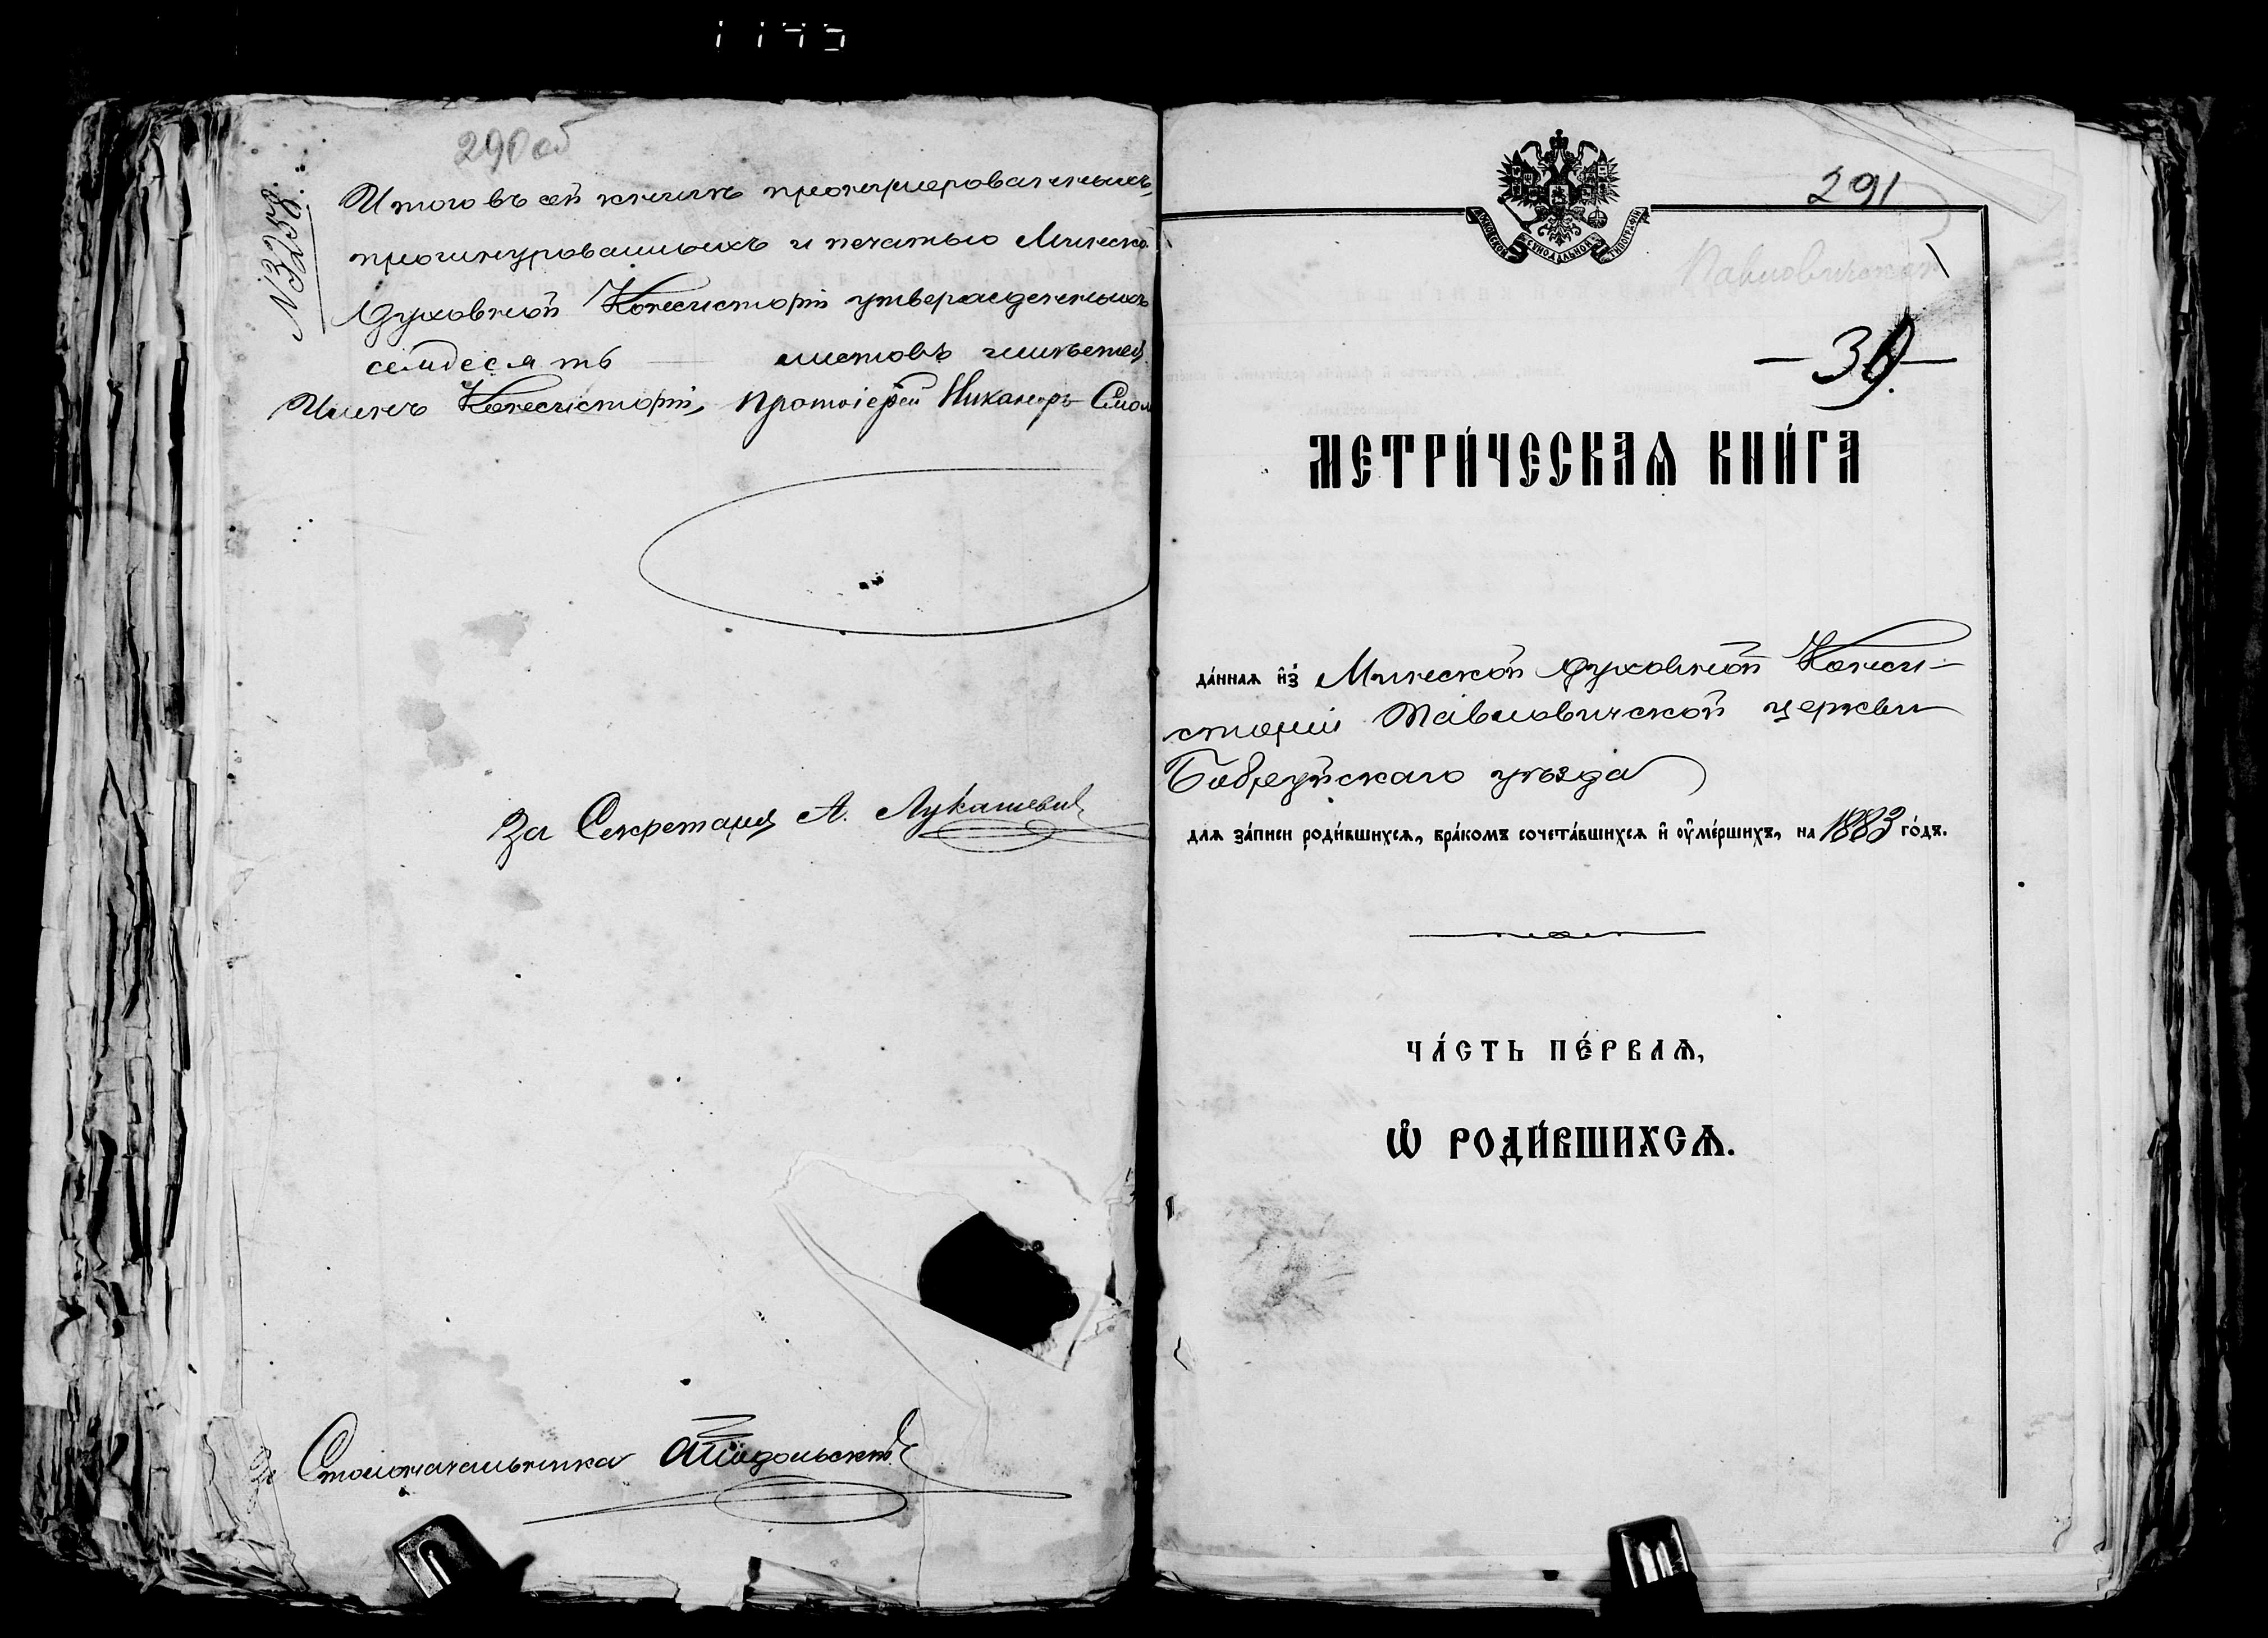 290 об
№ 3258.
Итого въ сей книги пронумерованныхъ,
прошнурованныхъ и печатью Минско
Духовной Консисторіи утвержденныхъ
семдесять листовъ имѣется.
Членъ Консисторіи, Протоіерей Никаноръ Смол
За Секретаря А. Лукашевич
За Столоначальника
291
МОСКОВСКОЙ СѴНОДАЛЬНОЙ ТИПОГРАФІИ
Павловичская
— 39. —
МЕТРИ́ЧЕСКАѦ КНИ́ГА
да́ннаѧ и҆з̾ Минской Духовной Конси-
сторіи Павловичской церкви
Бобруйскаго уѣзда
длѧ за́писи роди́вшихсѧ, бра́комъ сочета́вшихсѧ и҆ ᲂу҆ме́ршихъ, на 1883 го́дъ.
ЧА́СТЬ ПЕ́РВАѦ,
Ѽ РОДИ́ВШИХСѦ.